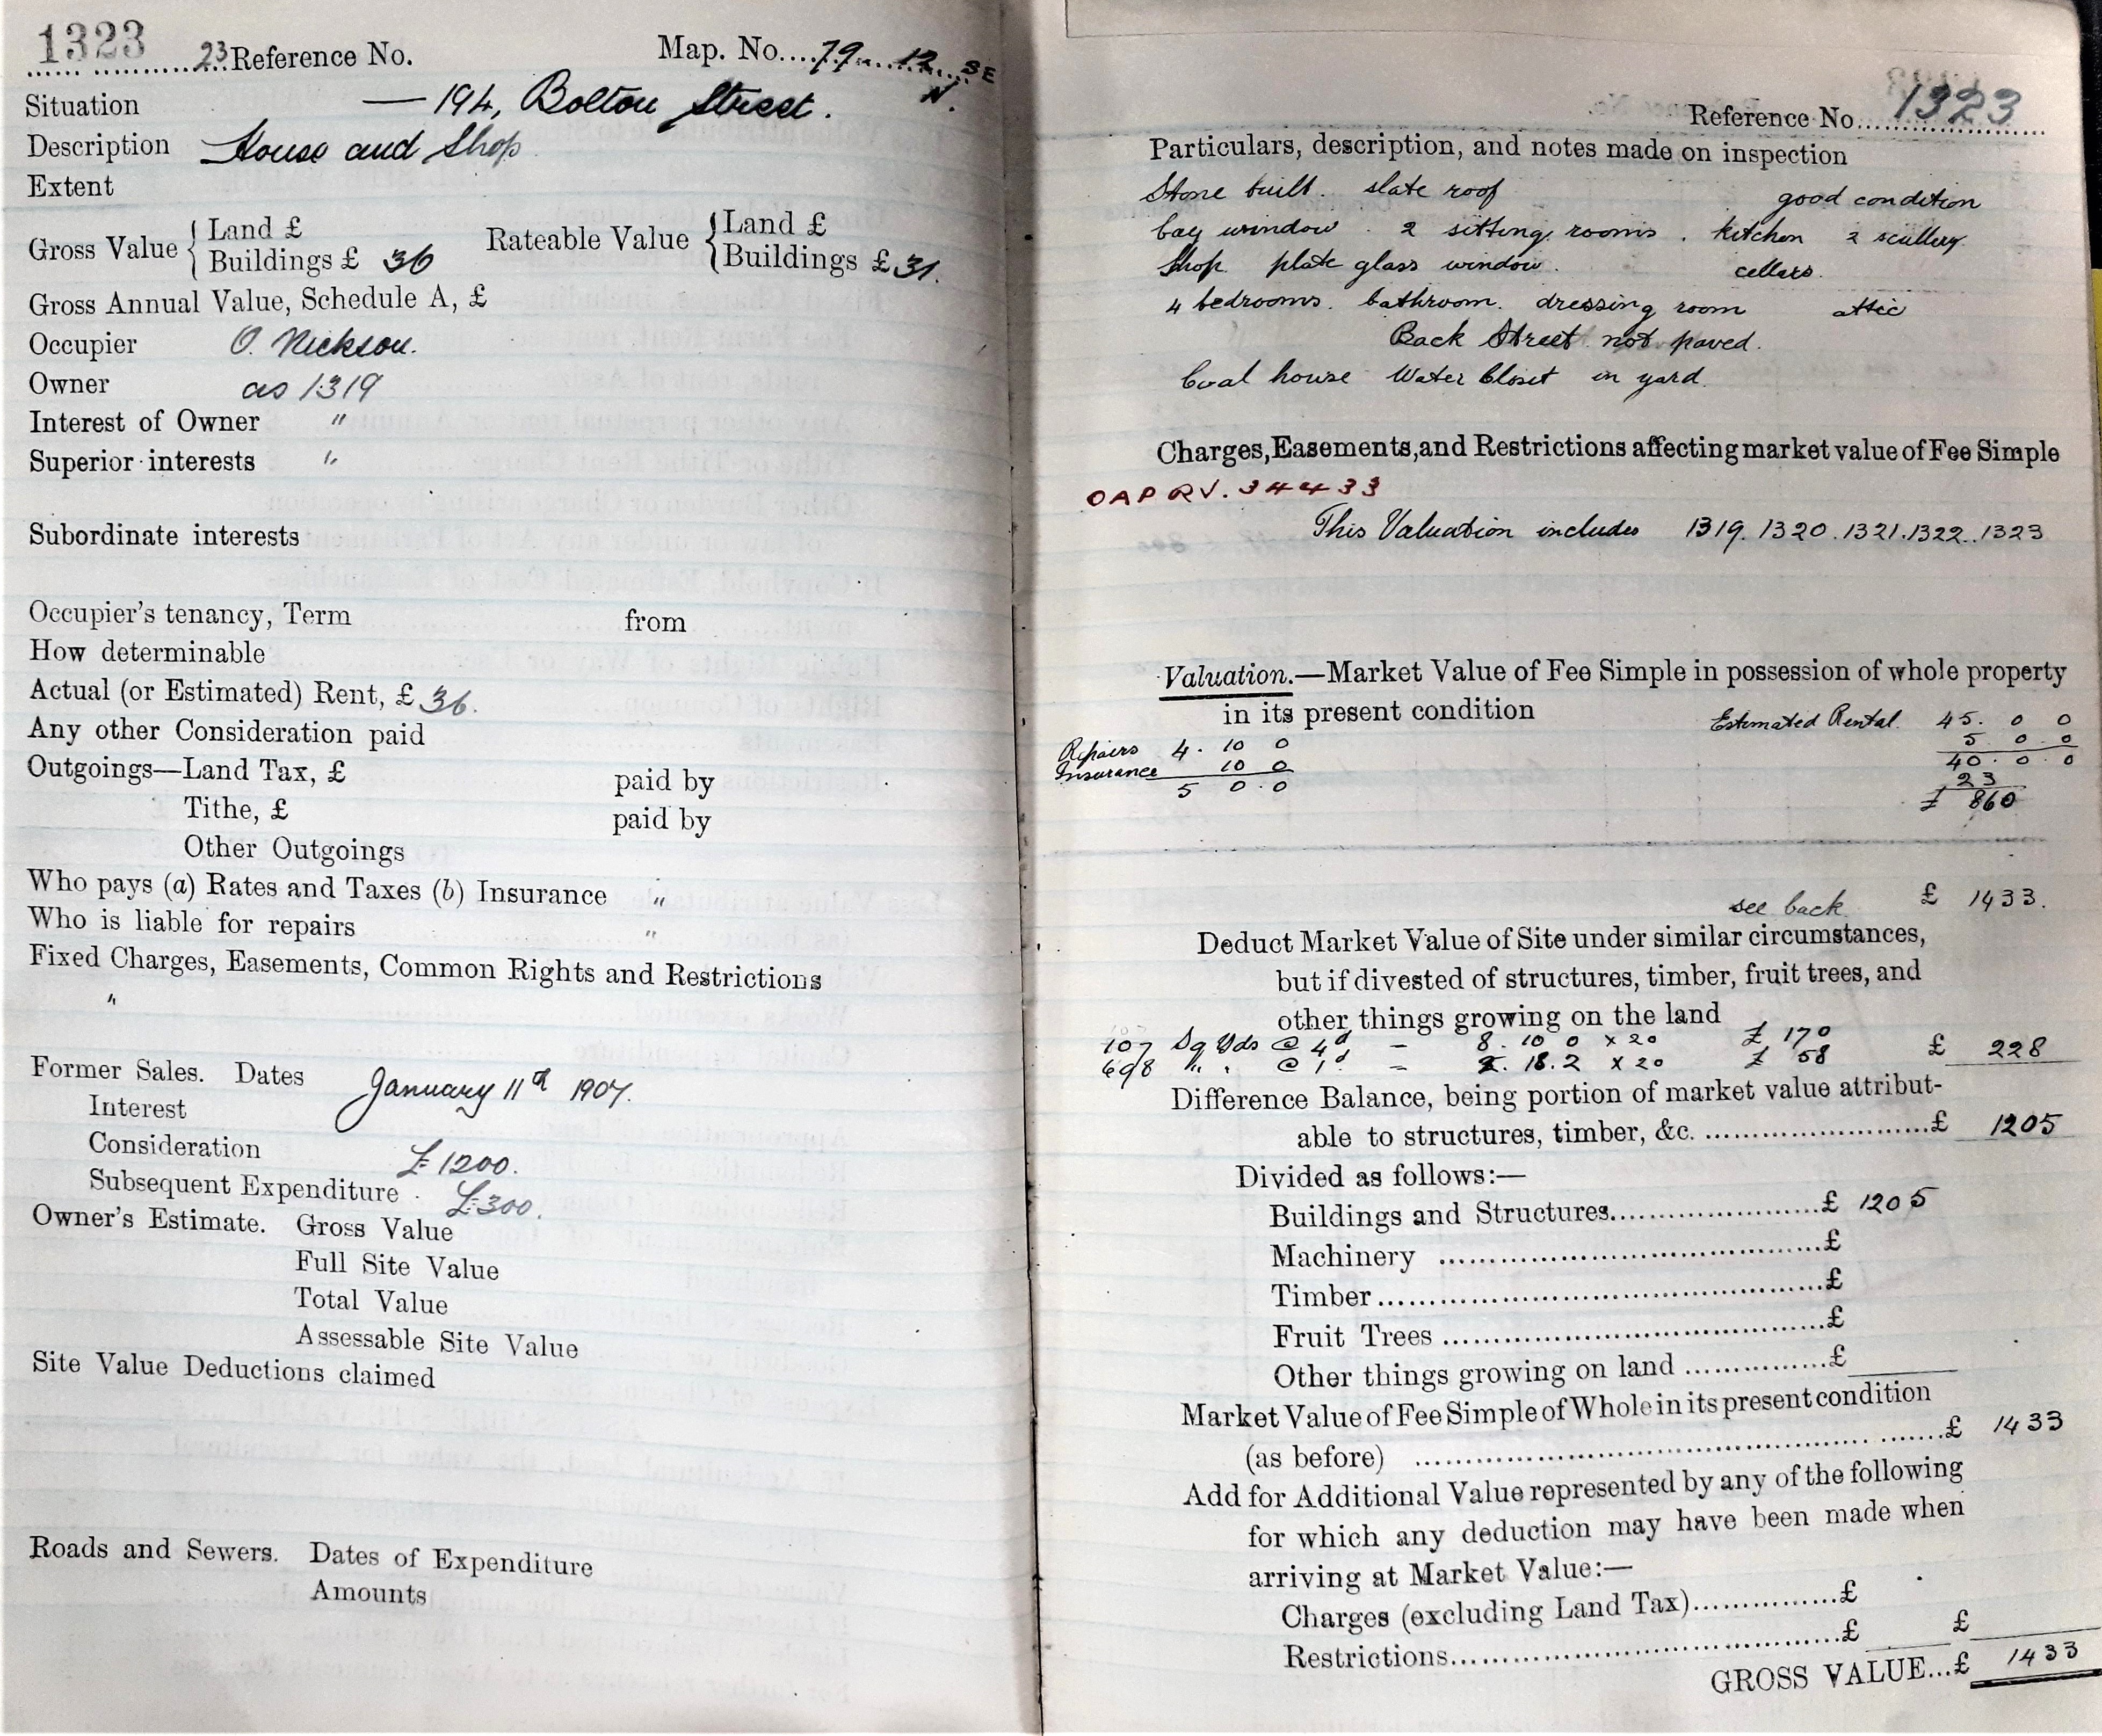 1323
23 Reference No. Map. No. 79 12 SE
N.
Situation — 194, Bolton Street.
Description House and Shop
Extent
Gross Value { Land £
Buildings £ 36
Rateable Value { Land £
Buildings £ 31.
Gross Annual Value, Schedule A, £
Occupier O. Nickson.
Owner as 1319
Interest of Owner "
Superior interests "
Subordinate interests
Occupier's tenancy, Term from
How determinable
Actual (or Estimated) Rent, £ 36.
Any other Consideration paid
Outgoings—Land Tax, £ paid by
Tithe, £ paid by
Other Outgoings
Who pays (a) Rates and Taxes (b) Insurance "
Who is liable for repairs "
Fixed Charges, Easements, Common Rights and Restrictions
"
Former Sales. Dates January 11th 1907.
Interest
Consideration £1200.
Subsequent Expenditure £300.
Owner's Estimate. Gross Value
Full Site Value
Total Value
Assessable Site Value
Site Value Deductions claimed
Roads and Sewers. Dates of Expenditure
Amounts
Reference No. 1323
Particulars, description, and notes made on inspection
Stone built. slate roof good condition
bay window . 2 sitting rooms . kitchen 2 scullery
Shop plate glass window. cellars.
4 bedrooms. bathroom. dressing room attic
Back Street not paved.
Coal house Water Closet in yard.
Charges, Easements, and Restrictions affecting market value of Fee Simple
OAP RV. 34433
This Valuation includes 1319. 1320. 1321. 1322. 1323
Valuation.—Market Value of Fee Simple in possession of whole property
in its present condition
Estimated Rental 45. 0 0
5 0. 0
40. 0. 0
23
£ 860
Repairs 4. 10 0
Insurance 10 0
5 0. 0
see back £ 1433.
Deduct Market Value of Site under similar circumstances,
but if divested of structures, timber, fruit trees, and
other things growing on the land
107 Sq Yds @ 4d – 8. 10 0 x 20 £ 170
698 " " @ 1d – 2. 18. 2 x 20 £ 58 £ 228
Difference Balance, being portion of market value attribut-
able to structures, timber, &c. £ 1205
Divided as follows:—
Buildings and Structures £ 1205
Machinery £
Timber £
Fruit Trees £
Other things growing on land £
Market Value of Fee Simple of Whole in its present condition
(as before) £ 1433
Add for Additional Value represented by any of the following
for which any deduction may have been made when
arriving at Market Value:—
Charges (excluding Land Tax) £
Restrictions £ £
GROSS VALUE...£ 1433